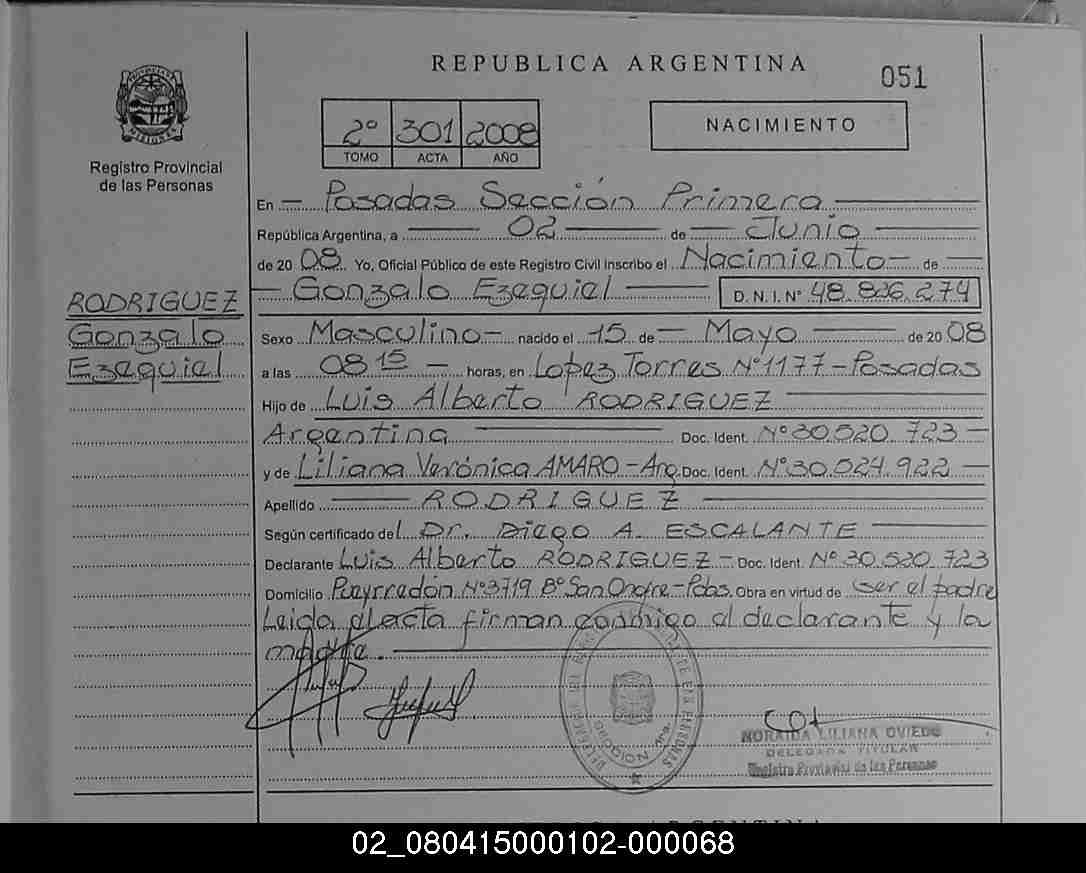 REPUBLICA ARGENTINA
051
PROVINCIA DE MISIONES
Registro Provincial
de las Personas
2º 301 2008
TOMO ACTA AÑO
NACIMIENTO
En Posadas Sección Primera
República Argentina, a 02 de Junio
de 20 08 Yo, Oficial Público de este Registro Civil inscribo el Nacimiento de
RODRIGUEZ
Gonzalo
Ezequiel
Gonzalo Ezequiel D.N.I. Nº 48.826.274
Sexo Masculino nacido el 15 de Mayo de 20 08
a las 08 15 horas, en Lopez Torres Nº 1177 - Posadas
Hijo de Luis Alberto RODRIGUEZ
Argentina Doc. Ident. Nº 30.520.723
y de Liliana Verónica AMARO - Arg. Doc. Ident. Nº 30.524.922
Apellido RODRIGUEZ
Según certificado del Dr. Diego A. ESCALANTE
Declarante Luis Alberto RODRIGUEZ - Doc. Ident. Nº 30.520.723
Domicilio Pueyrredón Nº 3719 Bº San Onofre - Pdas. Obra en virtud de ser el padre
Leida el acta firman conmigo el declarante y la
madre.
NORAIDA LILIANA OVIEDO
DELEGADA TITULAR
Registro Provincial de las Personas
02_080415000102-000068